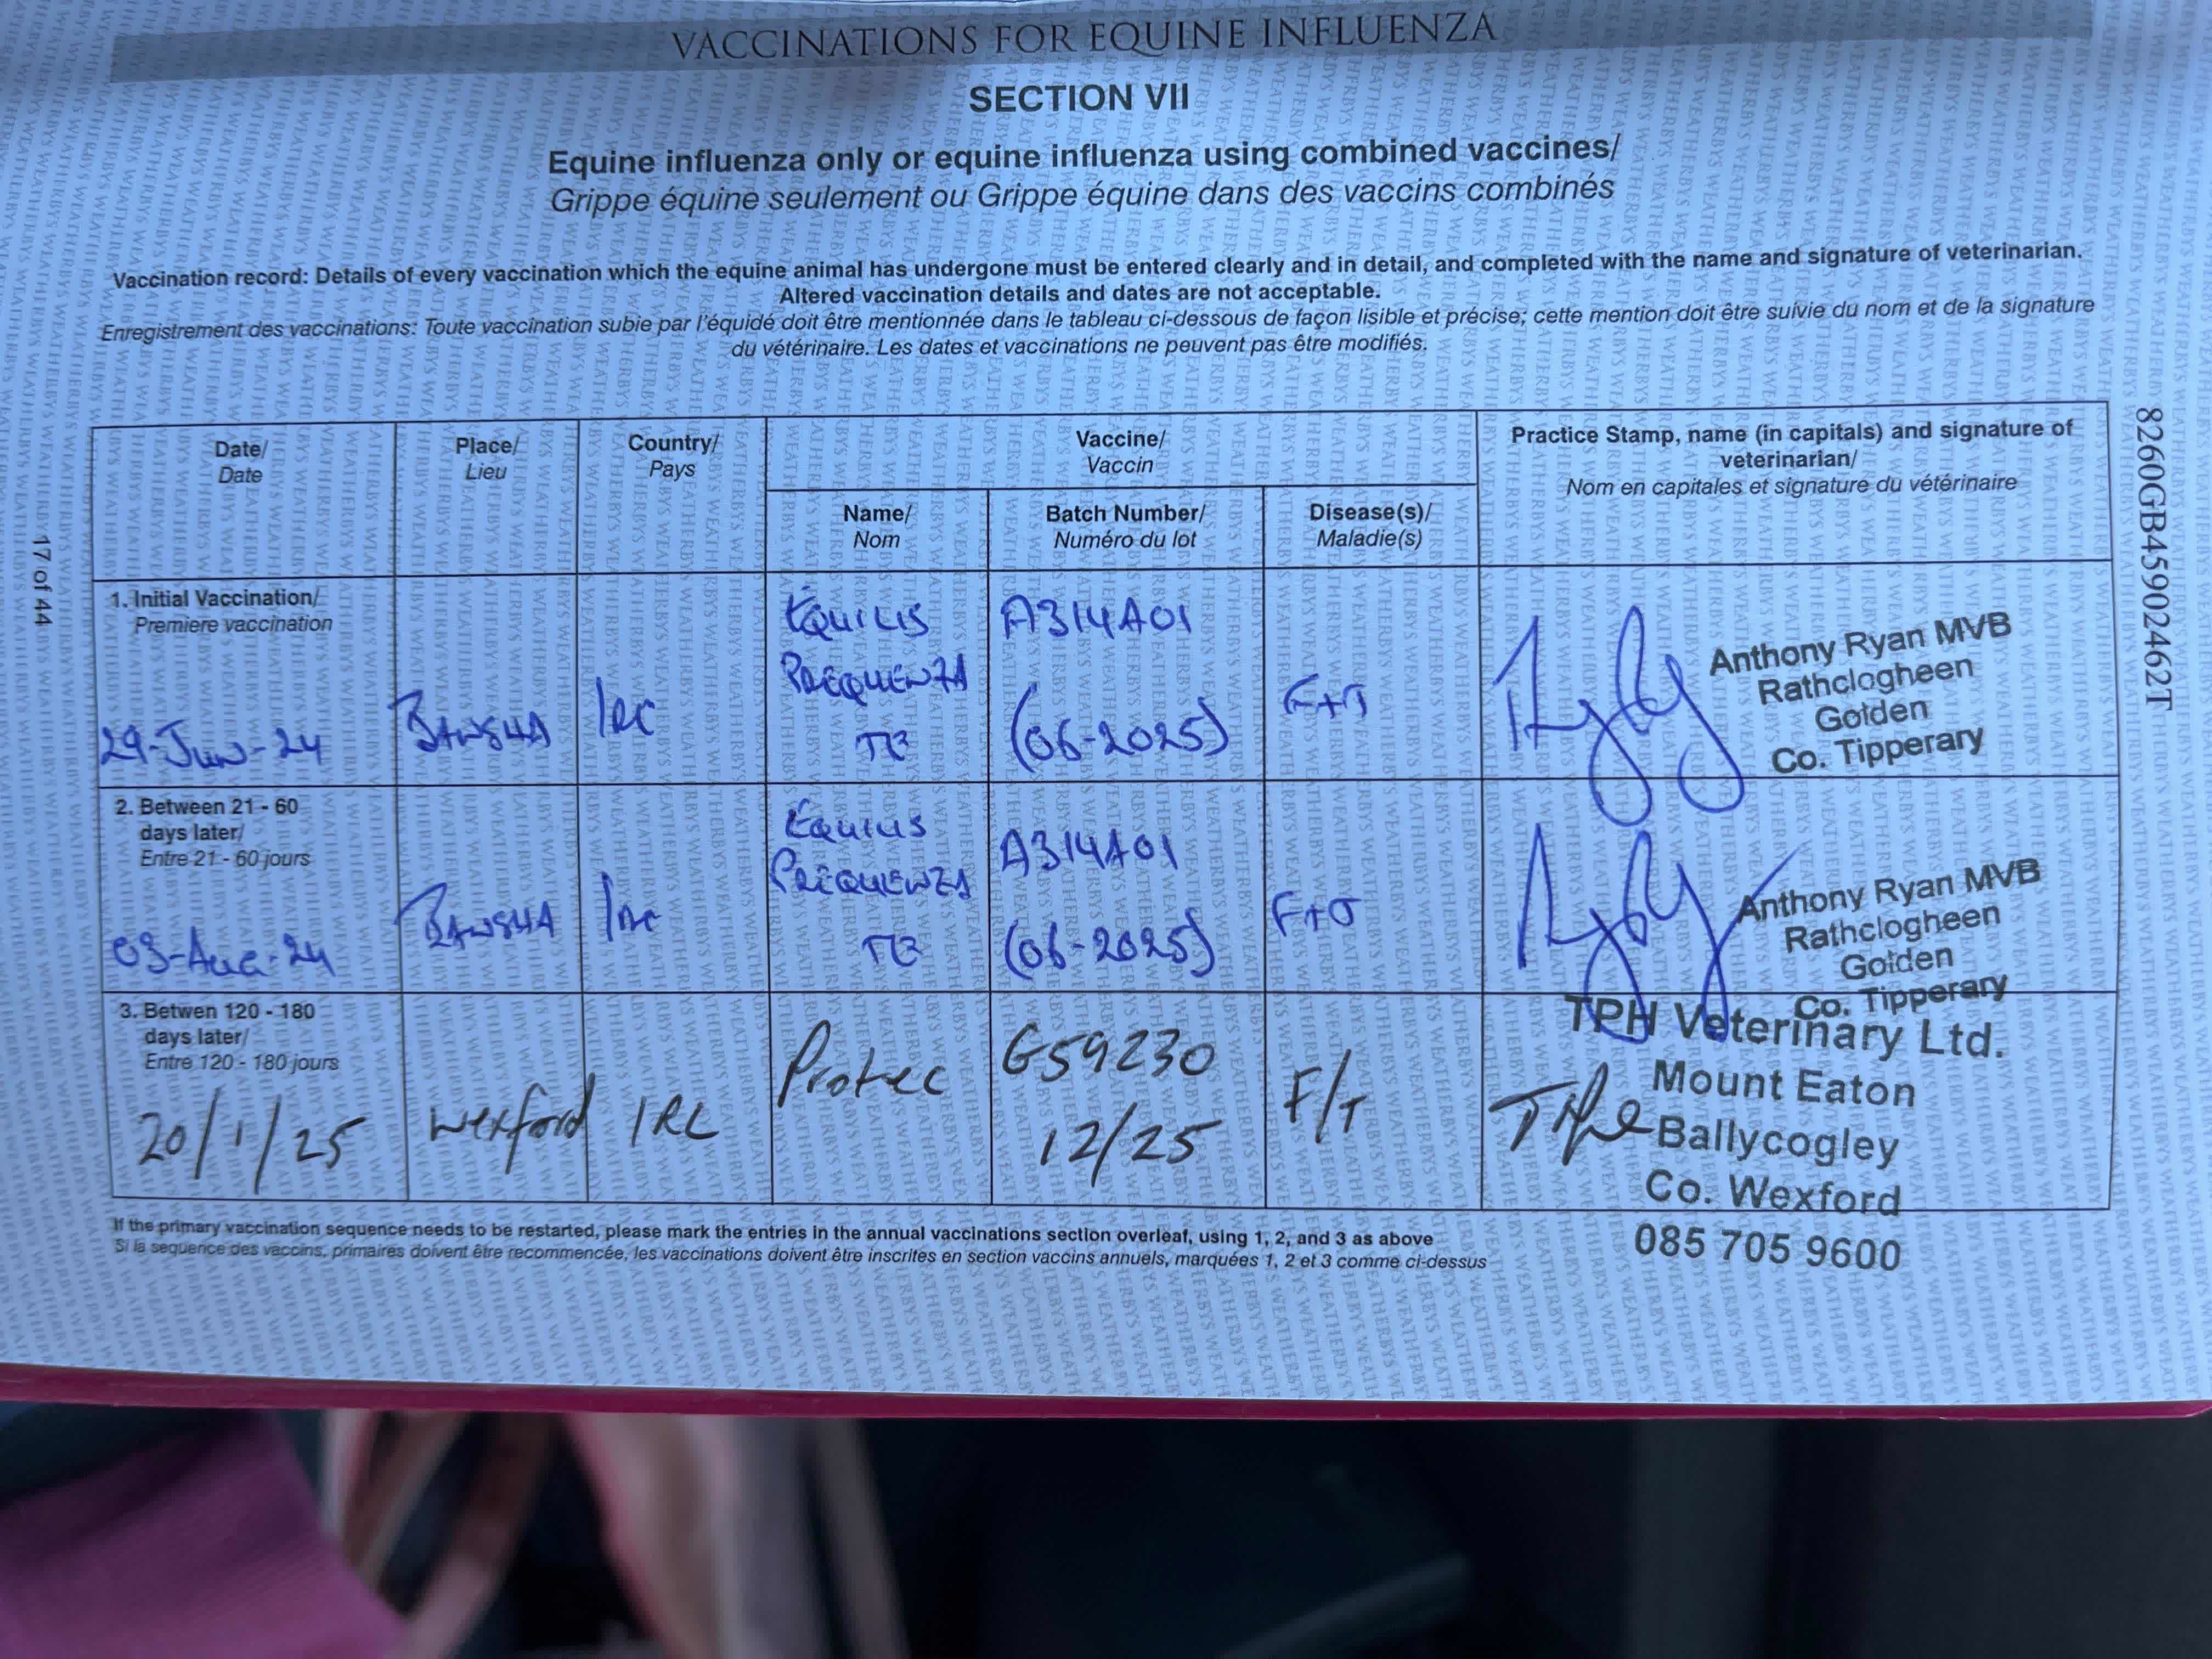 VACCINATIONS FOR EQUINE INFLUENZA
SECTION VII
Equine influenza only or equine influenza using combined vaccines/
Grippe équine seulement ou Grippe équine dans des vaccins combinés
Vaccination record: Details of every vaccination which the equine animal has undergone must be entered clearly and in detail, and completed with the name and signature of veterinarian.
Altered vaccination details and dates are not acceptable.
Enregistrement des vaccinations: Toute vaccination subie par l'équidé doit être mentionnée dans le tableau ci-dessous de façon lisible et précise; cette mention doit être suivie du nom et de la signature
du vétérinaire. Les dates et vaccinations ne peuvent pas être modifiés.
Date/
Date
Place/
Lieu
Country/
Pays
Vaccine/
Vaccin
Name/
Nom
Batch Number/
Numéro du lot
Disease(s)/
Maladie(s)
Practice Stamp, name (in capitals) and signature of
veterinarian/
Nom en capitales et signature du vétérinaire
1. Initial Vaccination/
Premiere vaccination
29-Jun-24
BANSHA
IRE
EQUILIS
PREQUENZA
TE
A314A01
(06-2025)
F+T
Anthony Ryan MVB
Rathclogheen
Golden
Co. Tipperary
2. Between 21 - 60
days later/
Entre 21 - 60 jours
03-Aug-24
BANSHA
IRE
EQUILIS
PREQUENZA
TE
A314A01
(06-2025)
F+T
Anthony Ryan MVB
Rathclogheen
Golden
Co. Tipperary
3. Betwen 120 - 180
days later/
Entre 120 - 180 jours
20/1/25
Wexford
IRL
Protec
G59230
12/25
F/T
TPH Veterinary Ltd.
Mount Eaton
Ballycogley
Co. Wexford
085 705 9600
If the primary vaccination sequence needs to be restarted, please mark the entries in the annual vaccinations section overleaf, using 1, 2, and 3 as above
Si la sequence des vaccins, primaires doivent être recommencée, les vaccinations doivent être inscrites en section vaccins annuels, marquées 1, 2 et 3 comme ci-dessus
17 of 44
8260GB45902462T